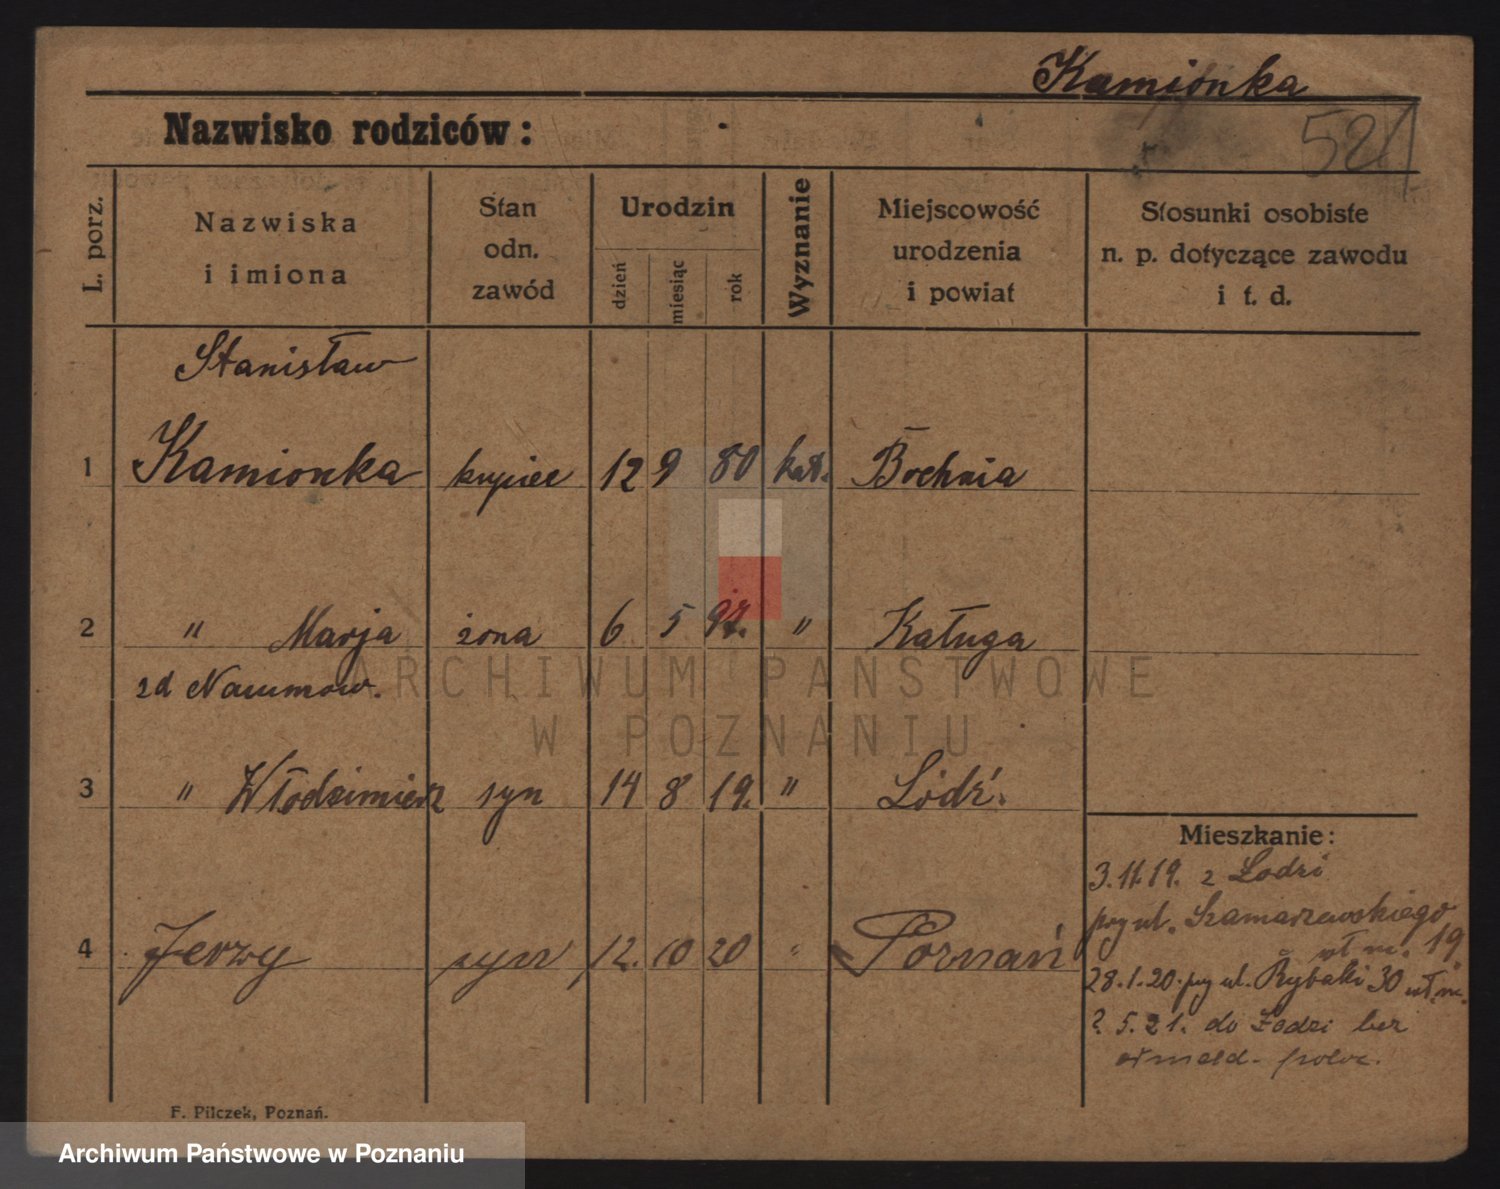 Kamionka
Nazwisko rodziców:
521
L. porz.
Nazwiska
i imiona
Stan
odn.
zawód
Urodzin
dzień
miesiąc
rok
Wyznanie
Miejscowość
urodzenia
i powiat
Stosunki osobiste
n. p. dotyczące zawodu
i t. d.
Stanisław
1 Kamionka kupiec 12 9 80 kat. Bochnia
2 " Marja żona 6 5 97. " Kaługa
zd Naumow.
3 " Włodzimierz syn 14 8 19. " Lódź.
4 Jerzy syn 12. 10 20 " Poznań
Mieszkanie:
3.11.19. z Lodzi
przy ul. Szamarzewskiego
wł. m. 19.
28.1.20. przy ul. Rybaki 30 wł. m.
?. 5.21. do Łodzi bez
F. Pilczek, Poznań.
ARCHIWUM PAŃSTWOWE
W POZNANIU
Archiwum Państwowe w Poznaniu